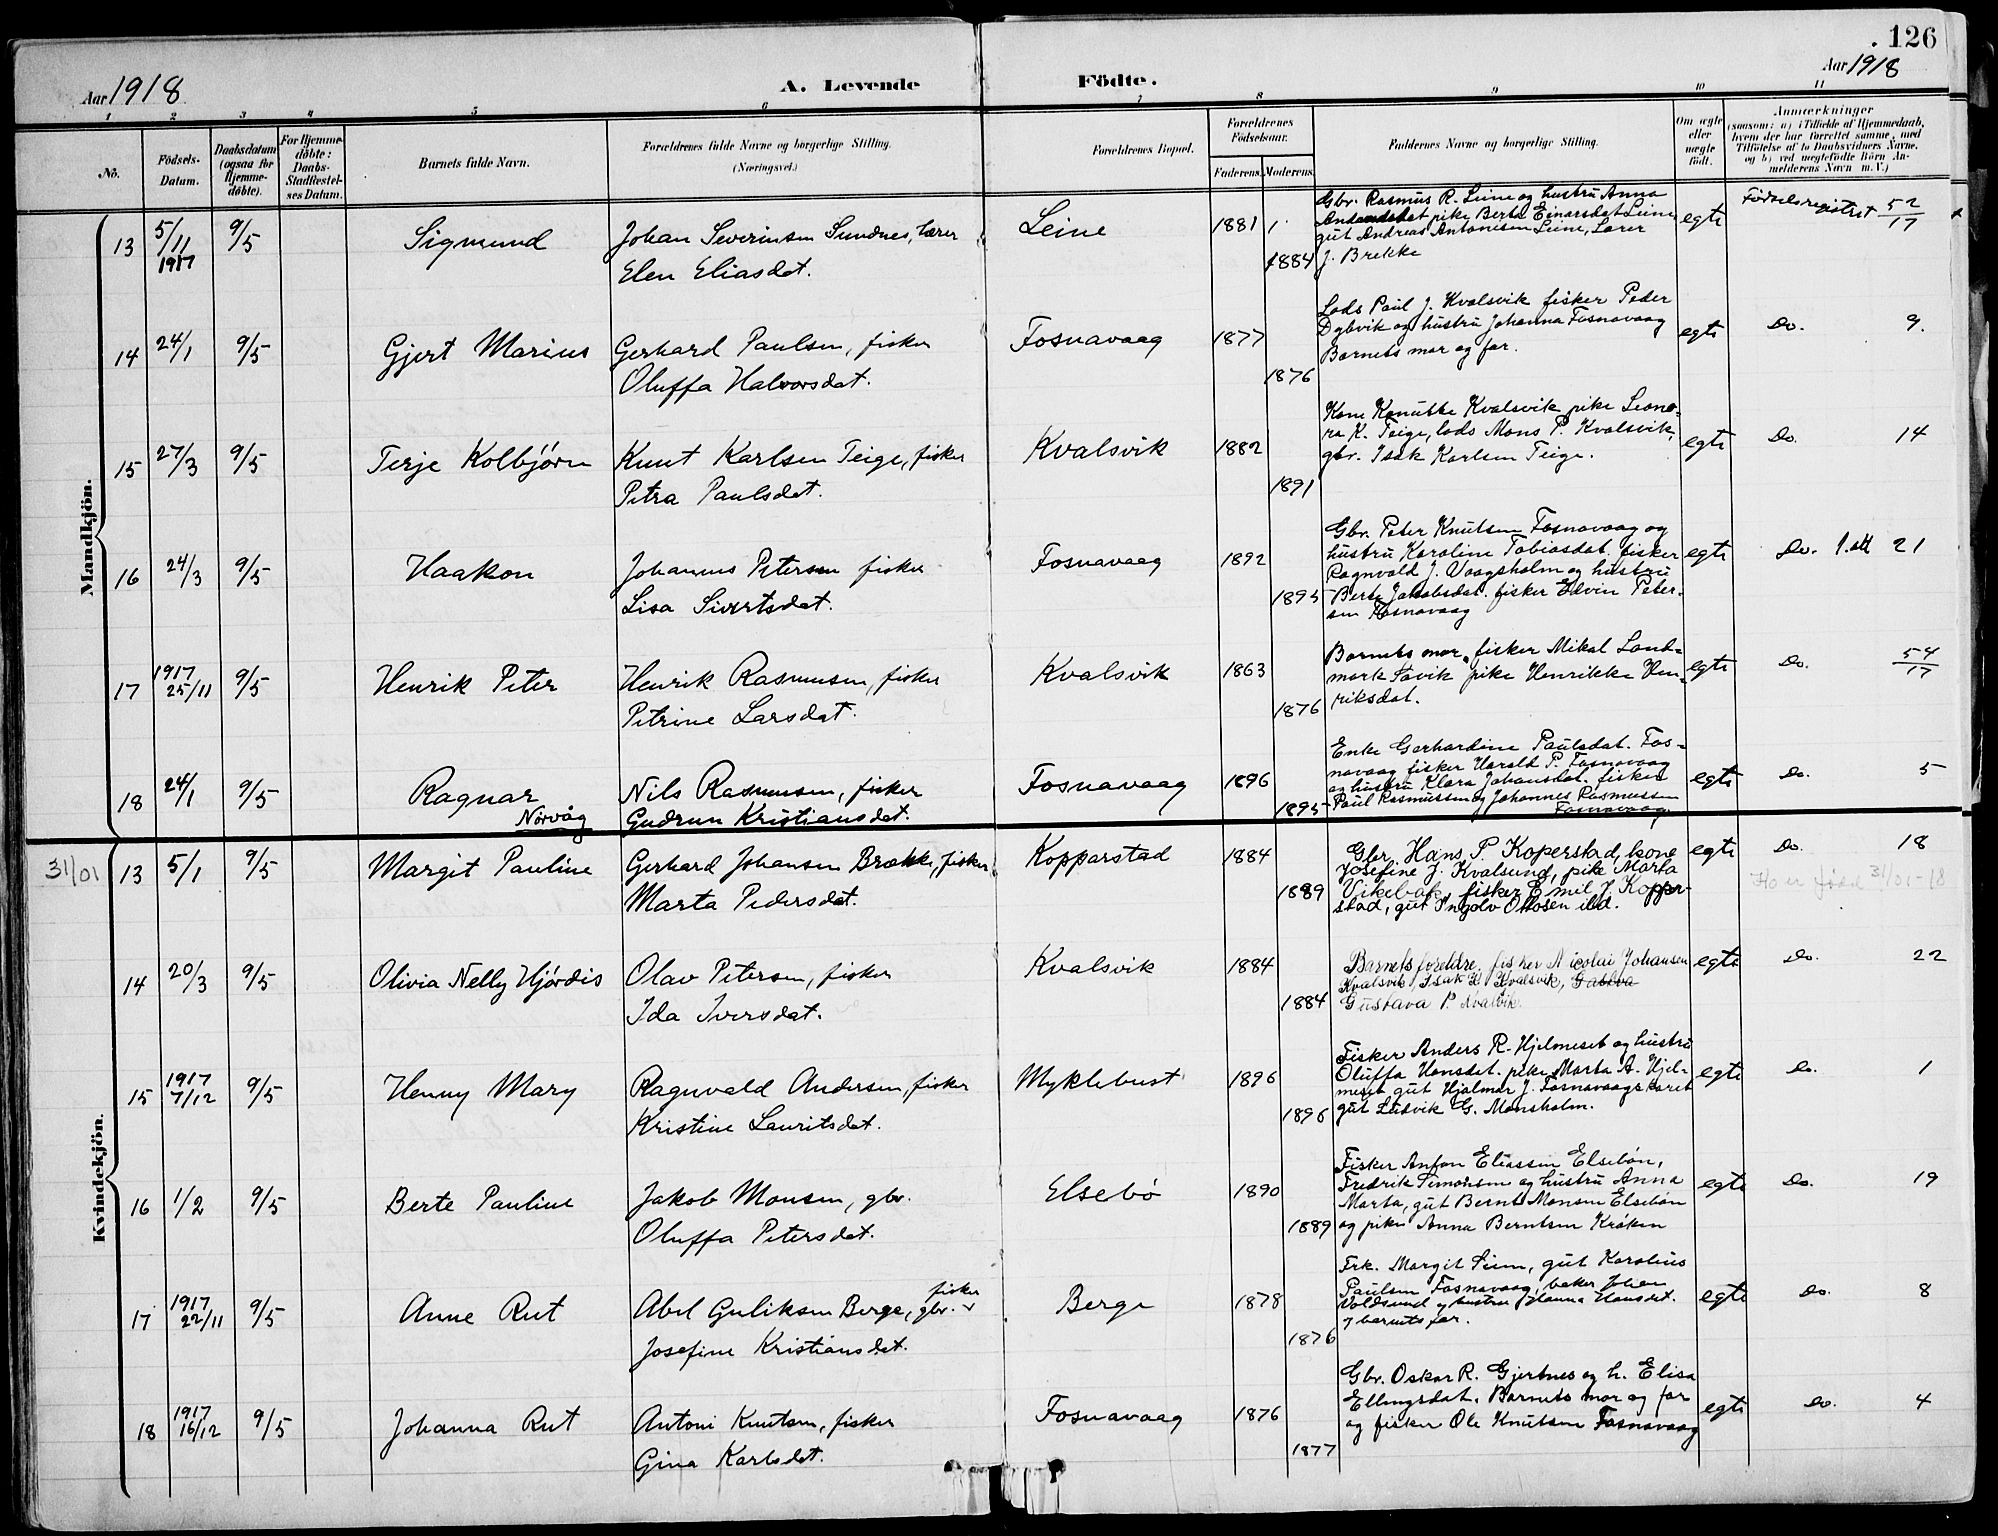 126
Aar 1918
A. Levende Födte.
Aar 1918
1 2 3 4 5 6 7 8 9 10 11
No.
Födsels-Datum.
Daabsdatum (ogsaa for Hjemme-döbte).
For Hjemme-döbte: Daabs-Stadfæstel-ses Datum.
Barnets fulde Navn.
Forældrenes fulde Navne og borgerlige Stilling.
(Næringsvei.)
Forældrenes Bopæl.
Forældrenes Födselsaar.
Faderens. Moderens.
Faddernes Navne og borgerlige Stilling.
Om ægte eller uægte födt.
Anmærkninger
(saasom: a) i Tilfælde af Hjemmedaab,
hvem der har forrettet samme, med
Tilföielse af to Daabsvidners Navne,
og b) ved uægtefödte Börn An-
melderens Navn m.V.)
Mandkjön.
13 5/11 1917 9/5 Sigmund
Johan Severinsen Sundnes, lærer
Elen Eliasdat.
Leine 1881 1884
Gbr. Rasmus R. Leine og hustru Anna
pike Berta Einarsdat Leine
gut Andreas Antonisen Leine, Lærer
J. Brekke
egte Födselsregistret 52/17
14 24/1 9/5 Gjert Marius
Gerhard Paulsen, fisker
Oluffa Halvorsdat.
Fosnavaag 1877 1876
Lods Paul J. Kvalsvik fisker Peder
Dybvik og hustru Johanna Fosnavaag
Barnets mor og far.
egte Do. 9.
15 27/3 9/5 Terje Kolbjörn
Knut Karlsen Teige, fisker
Petra Paulsdat.
Kvalsvik 1882 1891
Kone Knutte Kvalsvik pike Leono-
ra K. Teige, lods Mons P. Kvalsvik,
gbr. Isak Karlsen Teige.
egte Do. 14
16 24/3 9/5 Haakon
Johannes Petersen fisker
Lisa Sivertsdat.
Fosnavaag 1892 1895
Gbr. Peter Knutsen Fosnavaag og
hustru Karoline Tobiasdat. fisker
Ragnvald J. Vaagsholm og hustru
Berte Jakobsdat. fisker Edvin Peter-
sen Fosnavaag
egte Do. 21
17 1917 25/11 9/5 Henrik Peter
Henrik Rasmussen, fisker
Petrine Larsdat.
Kvalsvik 1863 1876
Barnets mor, fisker Mikal Land-
mark Tovik pike Henrikke Hen-
riksdat.
egte Do. 54/17
18 24/1 9/5 Ragnar
Norvåg
Nils Rasmussen, fisker
Gudrun Kristiansdat.
Fosnavaag 1896 1895
Enke Gerhardine Paulsdat. Fos-
navaag fisker Harald P. Fosnavaag
og hustru Klara Johansdat. fisker
Paul Rasmussen og Johannes Rasmussen
Fosnavaag
egte Do. 5
Kvindekjön.
31/01 13 5/1 9/5 Margit Pauline
Gerhard Johansen Brække, fisker
Marta Pedersdat.
Kopparstad 1884 1889
Gbr. Hans P. Koperstad, kone
Josefine J. Kvalsund, pike Marta
Vikebak, fisker Emil J. Kopper-
stad, gut Ingolv Ottosen ibd.
egte Do. 18
Ho er född 31/01-18
14 20/3 9/5 Olivia Nelly Hjördis
Olav Petersen, fisker
Ida Iversdat.
Kvalsvik 1884 1884
Barnets foreldre, fisker Nicolai Johansen
Kvalsvik, Isak K. Kvalsvik,
Gustava P. Kvalsvik.
egte Do. 22
15 1917 7/12 9/5 Henny Mary
Ragnvald Andersen, fisker
Kristine Lauritsdat.
Myklebust 1896 1896
Fisker Anders R. Hjelmeset og hustru
Oluffa Hansdat. pike Marta A. Hjel-
meset gut Hjalmar J. Fosnavaagskaret
gut Ludvik G. Monsholm.
egte Do. 1
16 1/2 9/5 Berte Pauline
Jakob Monsen, gbr.
Oluffa Petersdat.
Elsebö 1890 1889
Fisker Anton Eliassen Elsebön,
Fredrik Simonsen og hustru Anna
Marta, gut Bernt Monsen Elsebön
og pike Anna Berntsen Kröken
egte Do. 19
17 1917 22/11 9/5 Anne Rut
fisker
Abel Guliksen Berge, gbr.
Josefine Kristiansdat.
Berge 1878 1876
Frk. Margit Seim, gut Karolius
Paulsen Fosnavaag, baker Johan
Voldsund og hustru Johanna Hansdat.
og barnets far.
egte Do. 8
18 1917 16/12 9/5 Johanna Rut
Antoni Knutsen, fisker
Gina Karlsdat.
Fosnavaag 1876 1877
Gbr. Oskar R. Gjertnes og h. Elisa
Ellingsdat. Barnets mor og far
og fisker Ole Knutsen Fosnavaag
egte Do. 4